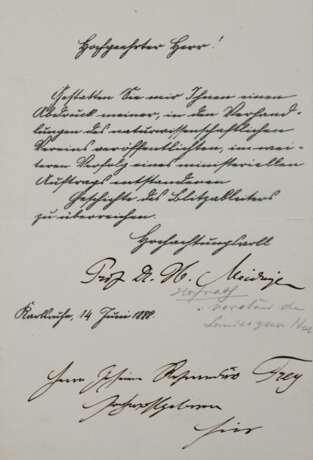 Hochgeehrter Herr!
Gestatten Sie mir Ihnen einen
Abdruck meiner, in den Verhand-
lungen des naturwissenschaftlichen
Vereins veröffentlichten, im wei-
teren Verfolg eines ministeriellen
Auftrags entstandenen
Geschichte des Blitzableiters
zu überreichen.
Hochachtungsvoll
Prof. Dr. H. Meidinger
Hofrath
Vorstand der
Karlsruhe, 14 Juni
Herrn Geheim Frey
Hochwohlgeboren
hier